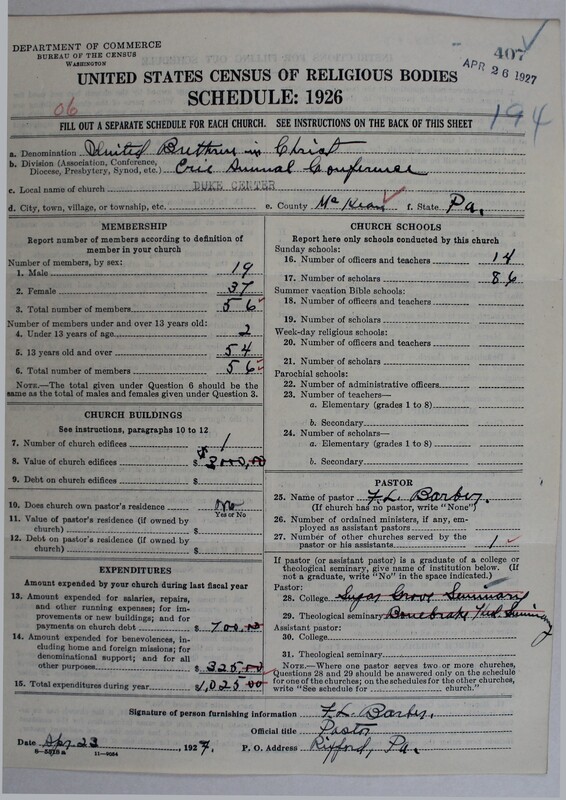 DEPARTMENT OF COMMERCE
BUREAU OF THE CENSUS
WASHINGTON
407
APR 26 1927
UNITED STATES CENSUS OF RELIGIOUS BODIES
SCHEDULE: 1926
06
194
FILL OUT A SEPARATE SCHEDULE FOR EACH CHURCH. SEE INSTRUCTIONS ON THE BACK OF THIS SHEET
a. Denomination United Brethren in Christ
b. Division (Association, Conference, Diocese, Presbytery, Synod, etc.) Erie Annual Conference
c. Local name of church DUKE CENTER
d. City, town, village, or township, etc. e. County McKean f. State Pa.
MEMBERSHIP
Report number of members according to definition of
member in your church
Number of members, by sex:
1. Male 19
2. Female 37
3. Total number of members 56
Number of members under and over 13 years old:
4. Under 13 years of age 2
5. 13 years old and over 54
6. Total number of members 56
NOTE.—The total given under Question 6 should be
same as the total of males and females given under Question 3.
CHURCH BUILDINGS
See instructions, paragraphs 10 to 12
7. Number of church edifices 1
8. Value of church edifices $ 3000,00
9. Debt on church edifices $
10. Does church own pastor's residence? No
Yes or No
11. Value of pastor's residence (if owned by
church) $
12. Debt on pastor's residence (if owned by
church) $
EXPENDITURES
Amount expended by your church during last fiscal year
13. Amount expended for salaries, repairs,
and other running expenses; for im-
provements or new buildings; and for
payments on church debt $ 700.00
14. Amount expended for benevolences, in-
cluding home and foreign missions; for
denominational support; and for all
other purposes $ 325.00
15. Total expenditures during year $ 1,025.00
CHURCH SCHOOLS
Report here only schools conducted by this church
Sunday schools:
16. Number of officers and teachers 14
17. Number of scholars 86
Summer vacation Bible schools:
18. Number of officers and teachers
19. Number of scholars
Week-day religious schools:
20. Number of officers and teachers
21. Number of scholars
Parochial schools:
22. Number of administrative officers
23. Number of teachers—
a. Elementary (grades 1 to 8)
b. Secondary
24. Number of scholars—
a. Elementary (grades 1 to 8)
b. Secondary
PASTOR
25. Name of pastor F. L. Barber.
(If church has no pastor, write "None")
26. Number of ordained ministers, if any, em-
ployed as assistant pastors
27. Number of other churches served by the
pastor or his assistants 1
If pastor (or assistant pastor) is a graduate of a college or
theological seminary, give name of institution below. (If
not a graduate, write "No" in the space indicated.)
Pastor:
28. College Sugar Grove Seminary
29. Theological seminary Bonebrake Theol. Seminary
Assistant pastor:
30. College
31. Theological seminary
NOTE.—Where one pastor serves two or more churches,
Questions 28 and 29 should be answered only on the schedule
for one of the churches; on the schedules for the other churches,
write "See schedule for church."
Signature of person furnishing information F. L. Barber.
Official title Pastor
Date Apr 23, 1927. P. O. Address Rixford, Pa.
11—9084